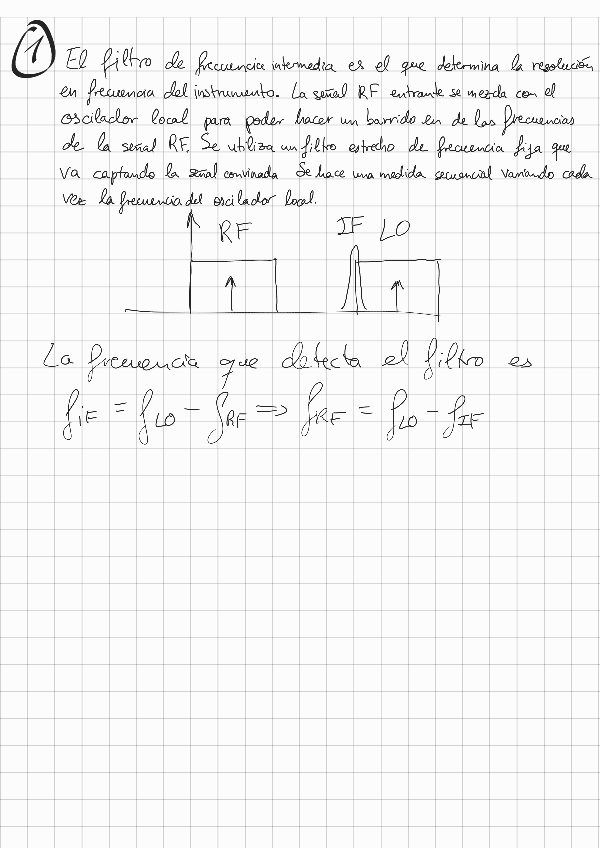 1
El filtro de frecuencia intermedia es el que determina la resolución
en frecuencia del instrumento. La señal RF entrante se mezcla con el
oscilador local para poder hacer un barrido en de las frecuencias
de la señal RF. Se utiliza un filtro estrecho de frecuencia fija que
va captando la señal convinada Se hace una medida secuencial variando cada
vez la frecuencia del oscilador local.
RF IF LO
La frecuencia que detecta el filtro es
fIF = fLO - fRF => fRF = fLO - fIF